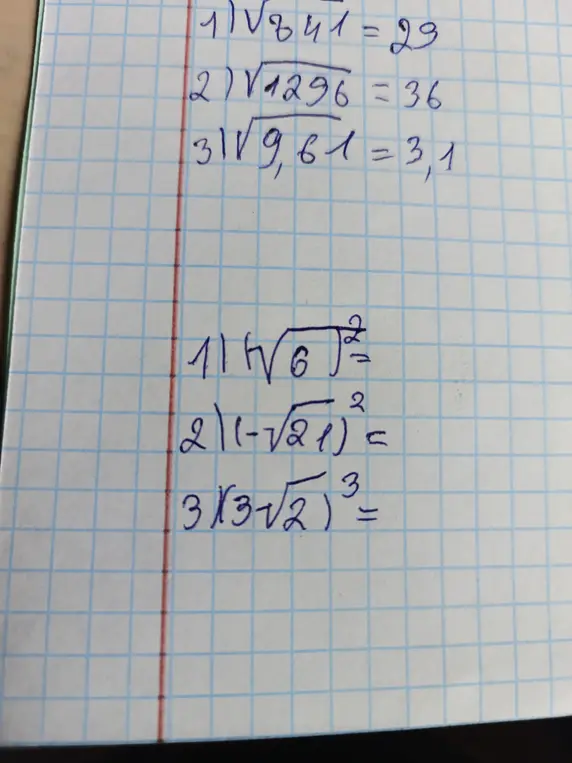 1) √841 = 29
2) √1296 = 36
3) √9,61 = 3,1
1) (√6)² =
2) (-√21)² =
3) (3√2)³ =